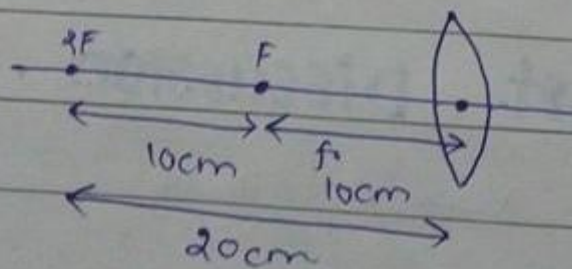 2F F
10cm f
10cm
20cm